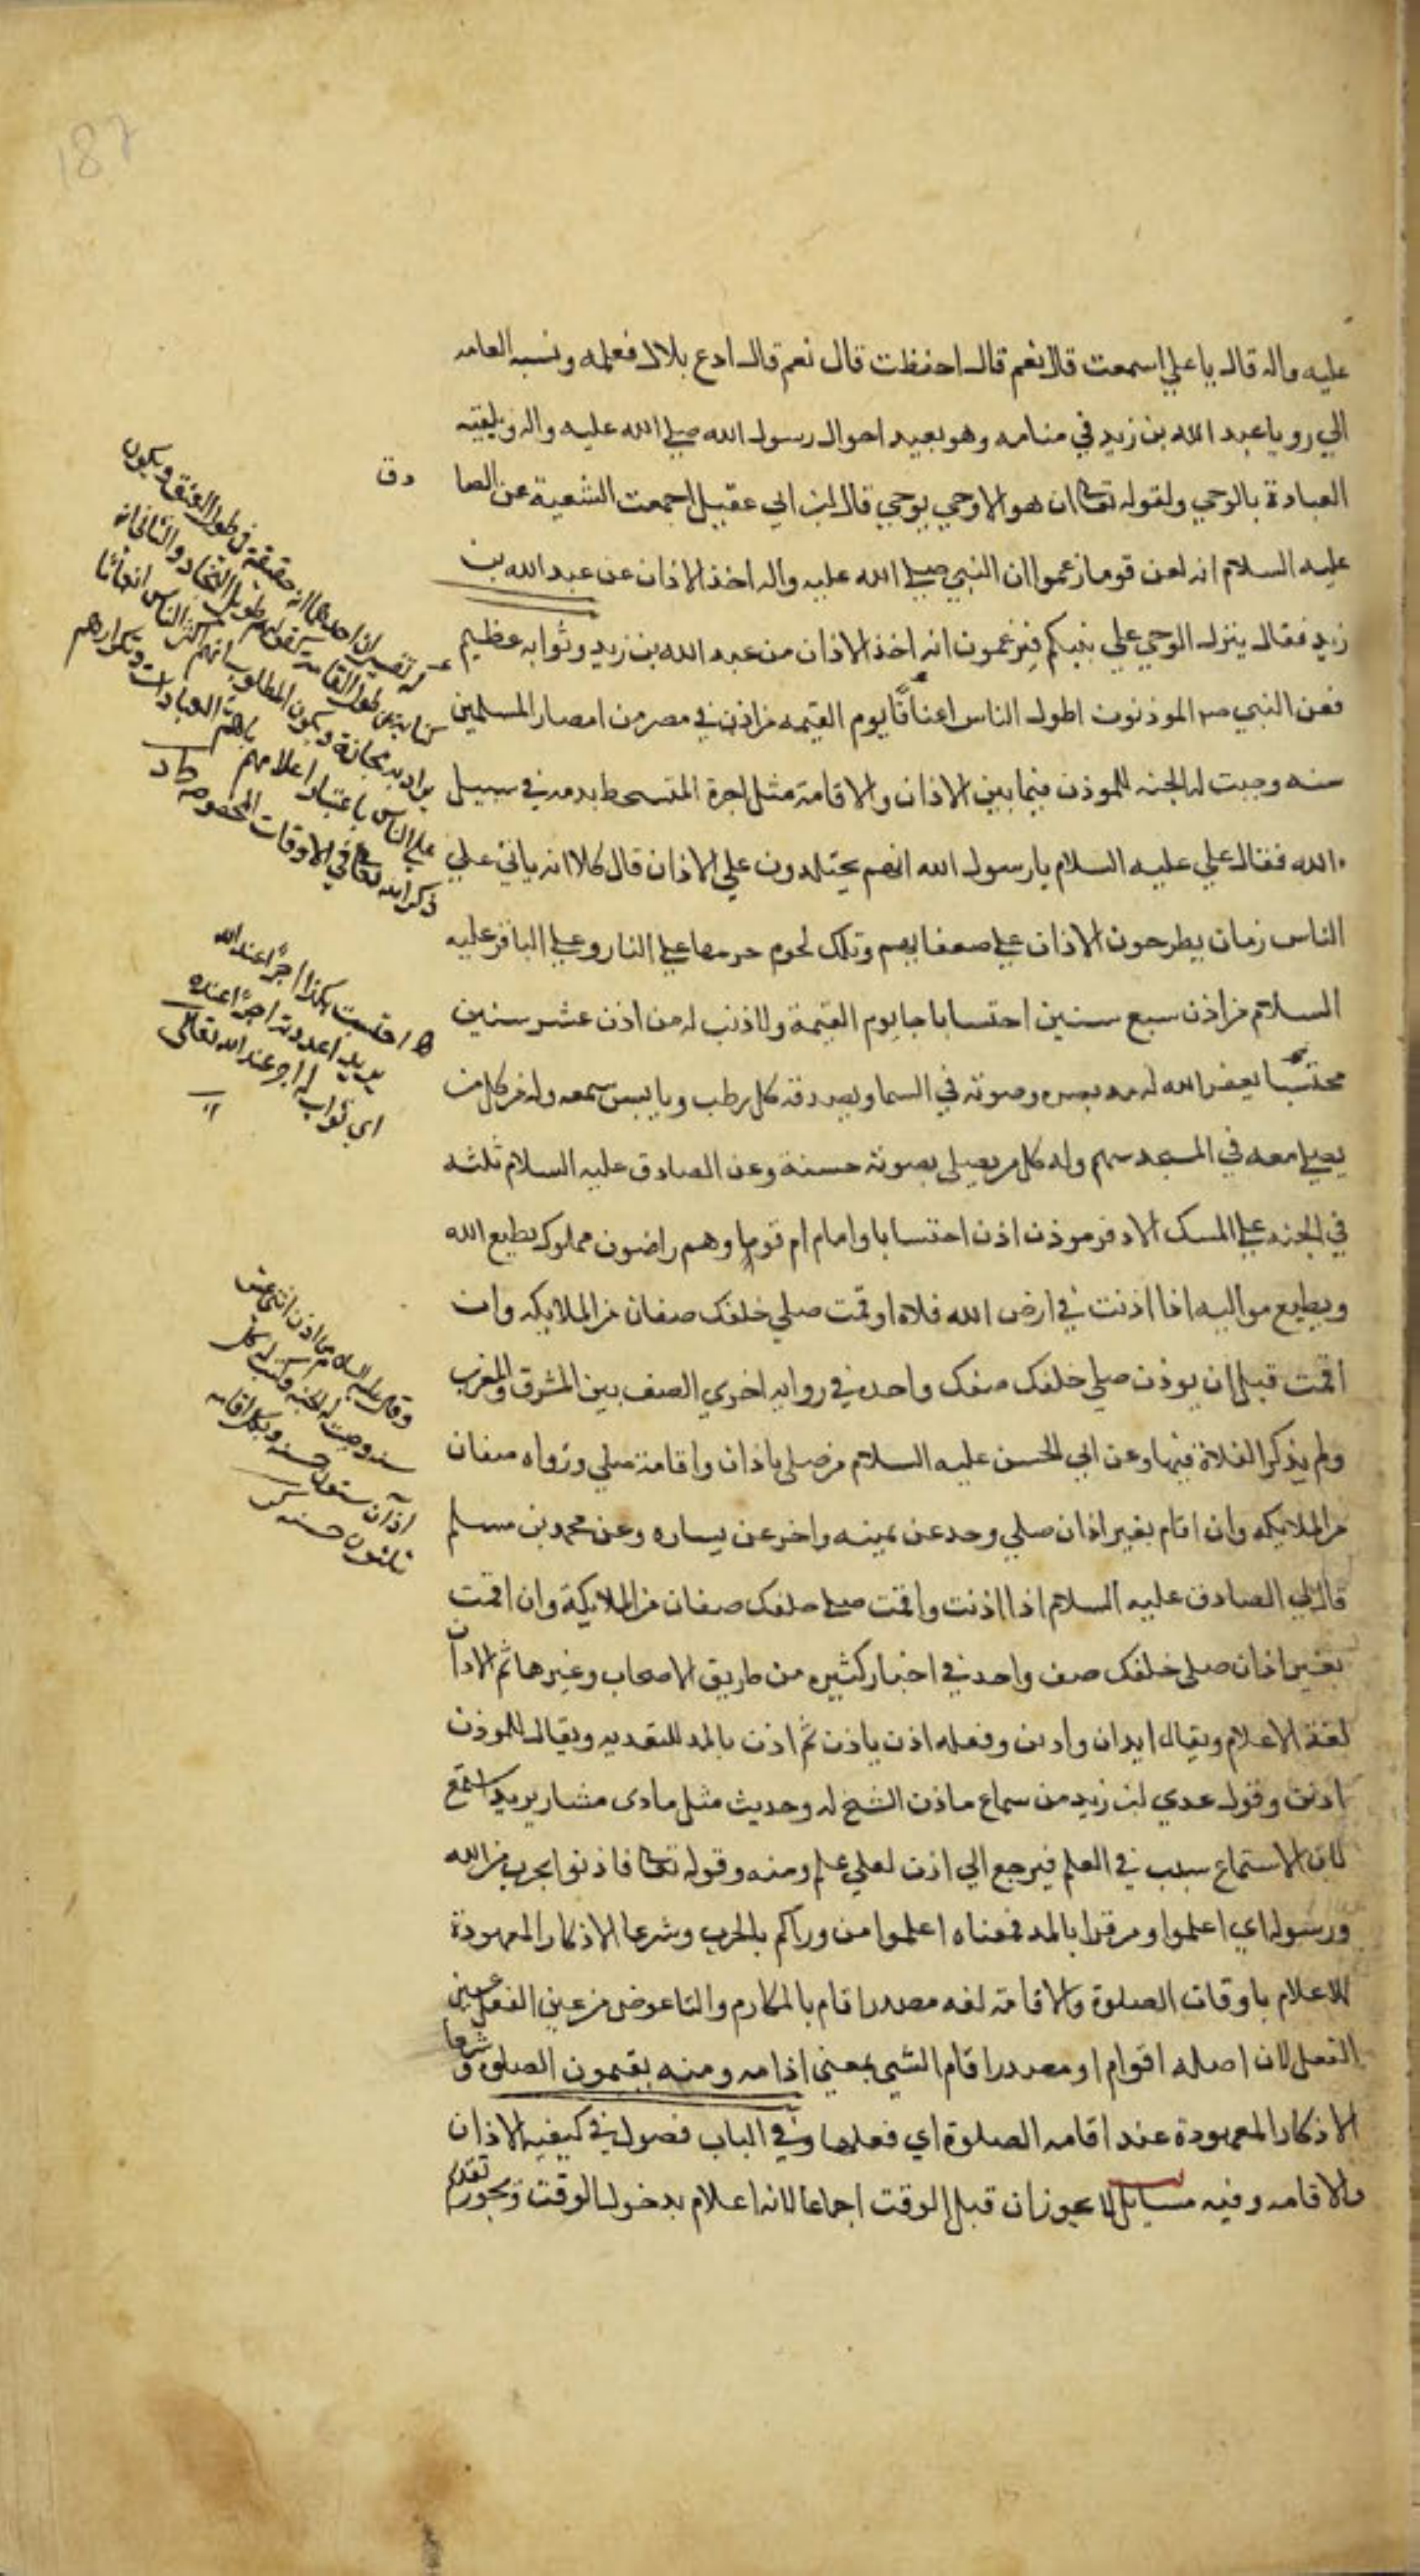 187
عليه واله قال يا علي اسمعت قال نعم قال احفظت قال نعم قال ادع بلالا فعلمه ونسبه العامه
الي رويا عبد الله بن زيد في منامه وهو بعيد احوال رسول الله صلي الله عليه واله وتلقيه
العبادة بالوحي ولقوله تعالي ان هو الا وحي يوحي قال ابن ابي عقيل اجمعت الشعية عن الصا
دق
عليه السلام انه لعن قوما زعموا ان النبي صلي الله عليه واله اخذ الاذان عن عبد الله بن
زيد فقال ينزل الوحي علي نبيكم فيزعمون انه اخذ الاذان من عبد الله بن زيد وثوابه عظيم
فعن النبي صم الموذنون اطول الناس اعناقا يوم القيمه من اذن في مصر من امصار المسلمين
سنه وجبت له الجنه للموذن فيما بين الاذان والاقامة مثل اجرة المتسحط بدمه في سبيل
الله فقال علي عليه السلام يا رسول الله انهم يجتلدون علي الاذان قال كلا انه ياتي علي
الناس زمان يطرحون الاذان علي ضعفايهم وتلك لحوم حرمها علي النار وعلي الباقر عليه
السلام من اذن سبع سنين احتسابا جا يوم القيمة ولا ذنب له من اذن عشر سنين
محتسبا يغفر الله له مد بصره وصوته في السما ويصدقه كل رطب ويابس سمعه وله من كل من
يصلي معه في المسجد سهم وله كل من يصلي بصوته حسنة وعن الصادق عليه السلام ثلثه
في الجنه علي المسك الاذفر موذن اذن احتسابا وامام ام قوما وهم راضون مملوك يطيع الله
ويطيع مواليه اذا اذنت في ارض الله فلاه اوقمت صلي خلفك صفان من الملايكه وان
اقمت قبل ان يوذن صلي خلفك صفك واحد في روايه اخري الصف بين المشرق والمغرب
ولم يذكر الفلاة فيها وعن ابي الحسن عليه السلام من صلي باذان واقامة صلي وزواه صفان
من الملايكه وان اقام بغير اذان صلي وحد عن يمينه واخر عن يساره وعن محمد بن مسلم
قال لي الصادق عليه السلام اذا اذنت واقمت صلي خلفك صفان من الملايكة وان اقمت
بغير اذان صلي خلفك صف واحد في اخبار كثيره من طريق الاصحاب وغيرها ثم الاذان
لغة الاعلام ويقال ايذان واذين وفعله اذن ياذن ثم اذن بالمد للتعديه ويقال للموذن
اذنت وقول عدي ابن زيد من سماع ماذن الشيخ له وحديث مثل ماذي مشار يريد استمع
كان الاستماع سبب في العلم فيرجع الي اذن لعلي علم ومنه وقوله تعالي فاذنوا بحرب من الله
ورسوله اي اعلموا ومن قرا بالمد فمعناه اعلموا من وراكم بالحرب وشرعا الاذكار المعهودة
للاعلام باوقات الصلوة والاقامة لغه مصدر اقام بالمكارم والتا عوض من عين الفعل عين
الفعل لان اصله اقوام او مصدر اقام الشي بمعني اذامه ومنه يقيمون الصلوة وشرعا
الاذكار المعهودة عند اقامه الصلوة اي فعلها وفي الباب فصول في كيفيه الاذان
والاقامه وفيه مسايل لا يجوز ان قبل الوقت اجماعا لانه اعلام بدخول الوقت ويجوز تقديم
له تفسيران احدهما انه حقيقة في طول العنق ويكون
كناية عن طول القامة كقولهم طويل النجاد والثاني انه
يراد به مجازة ويكون المطلوب انهم اكثر الناس انعاتا
علي الناس باعتبار اعلامهم باهم العبادات وتكرارهم
ذكر الله تعالي في الاوقات المخصوصه
احتسبت بكذا اجرا عند الله
يريد اعددته اجرا عنده
اي ثواب له اجر عند الله تعالي
وقال عليه السلام من اذن اثني عشر
سنه وجبت له الجنه وكتب له بكل
اذان ستون حسنه وبكل اقامه
ثلثون حسنه